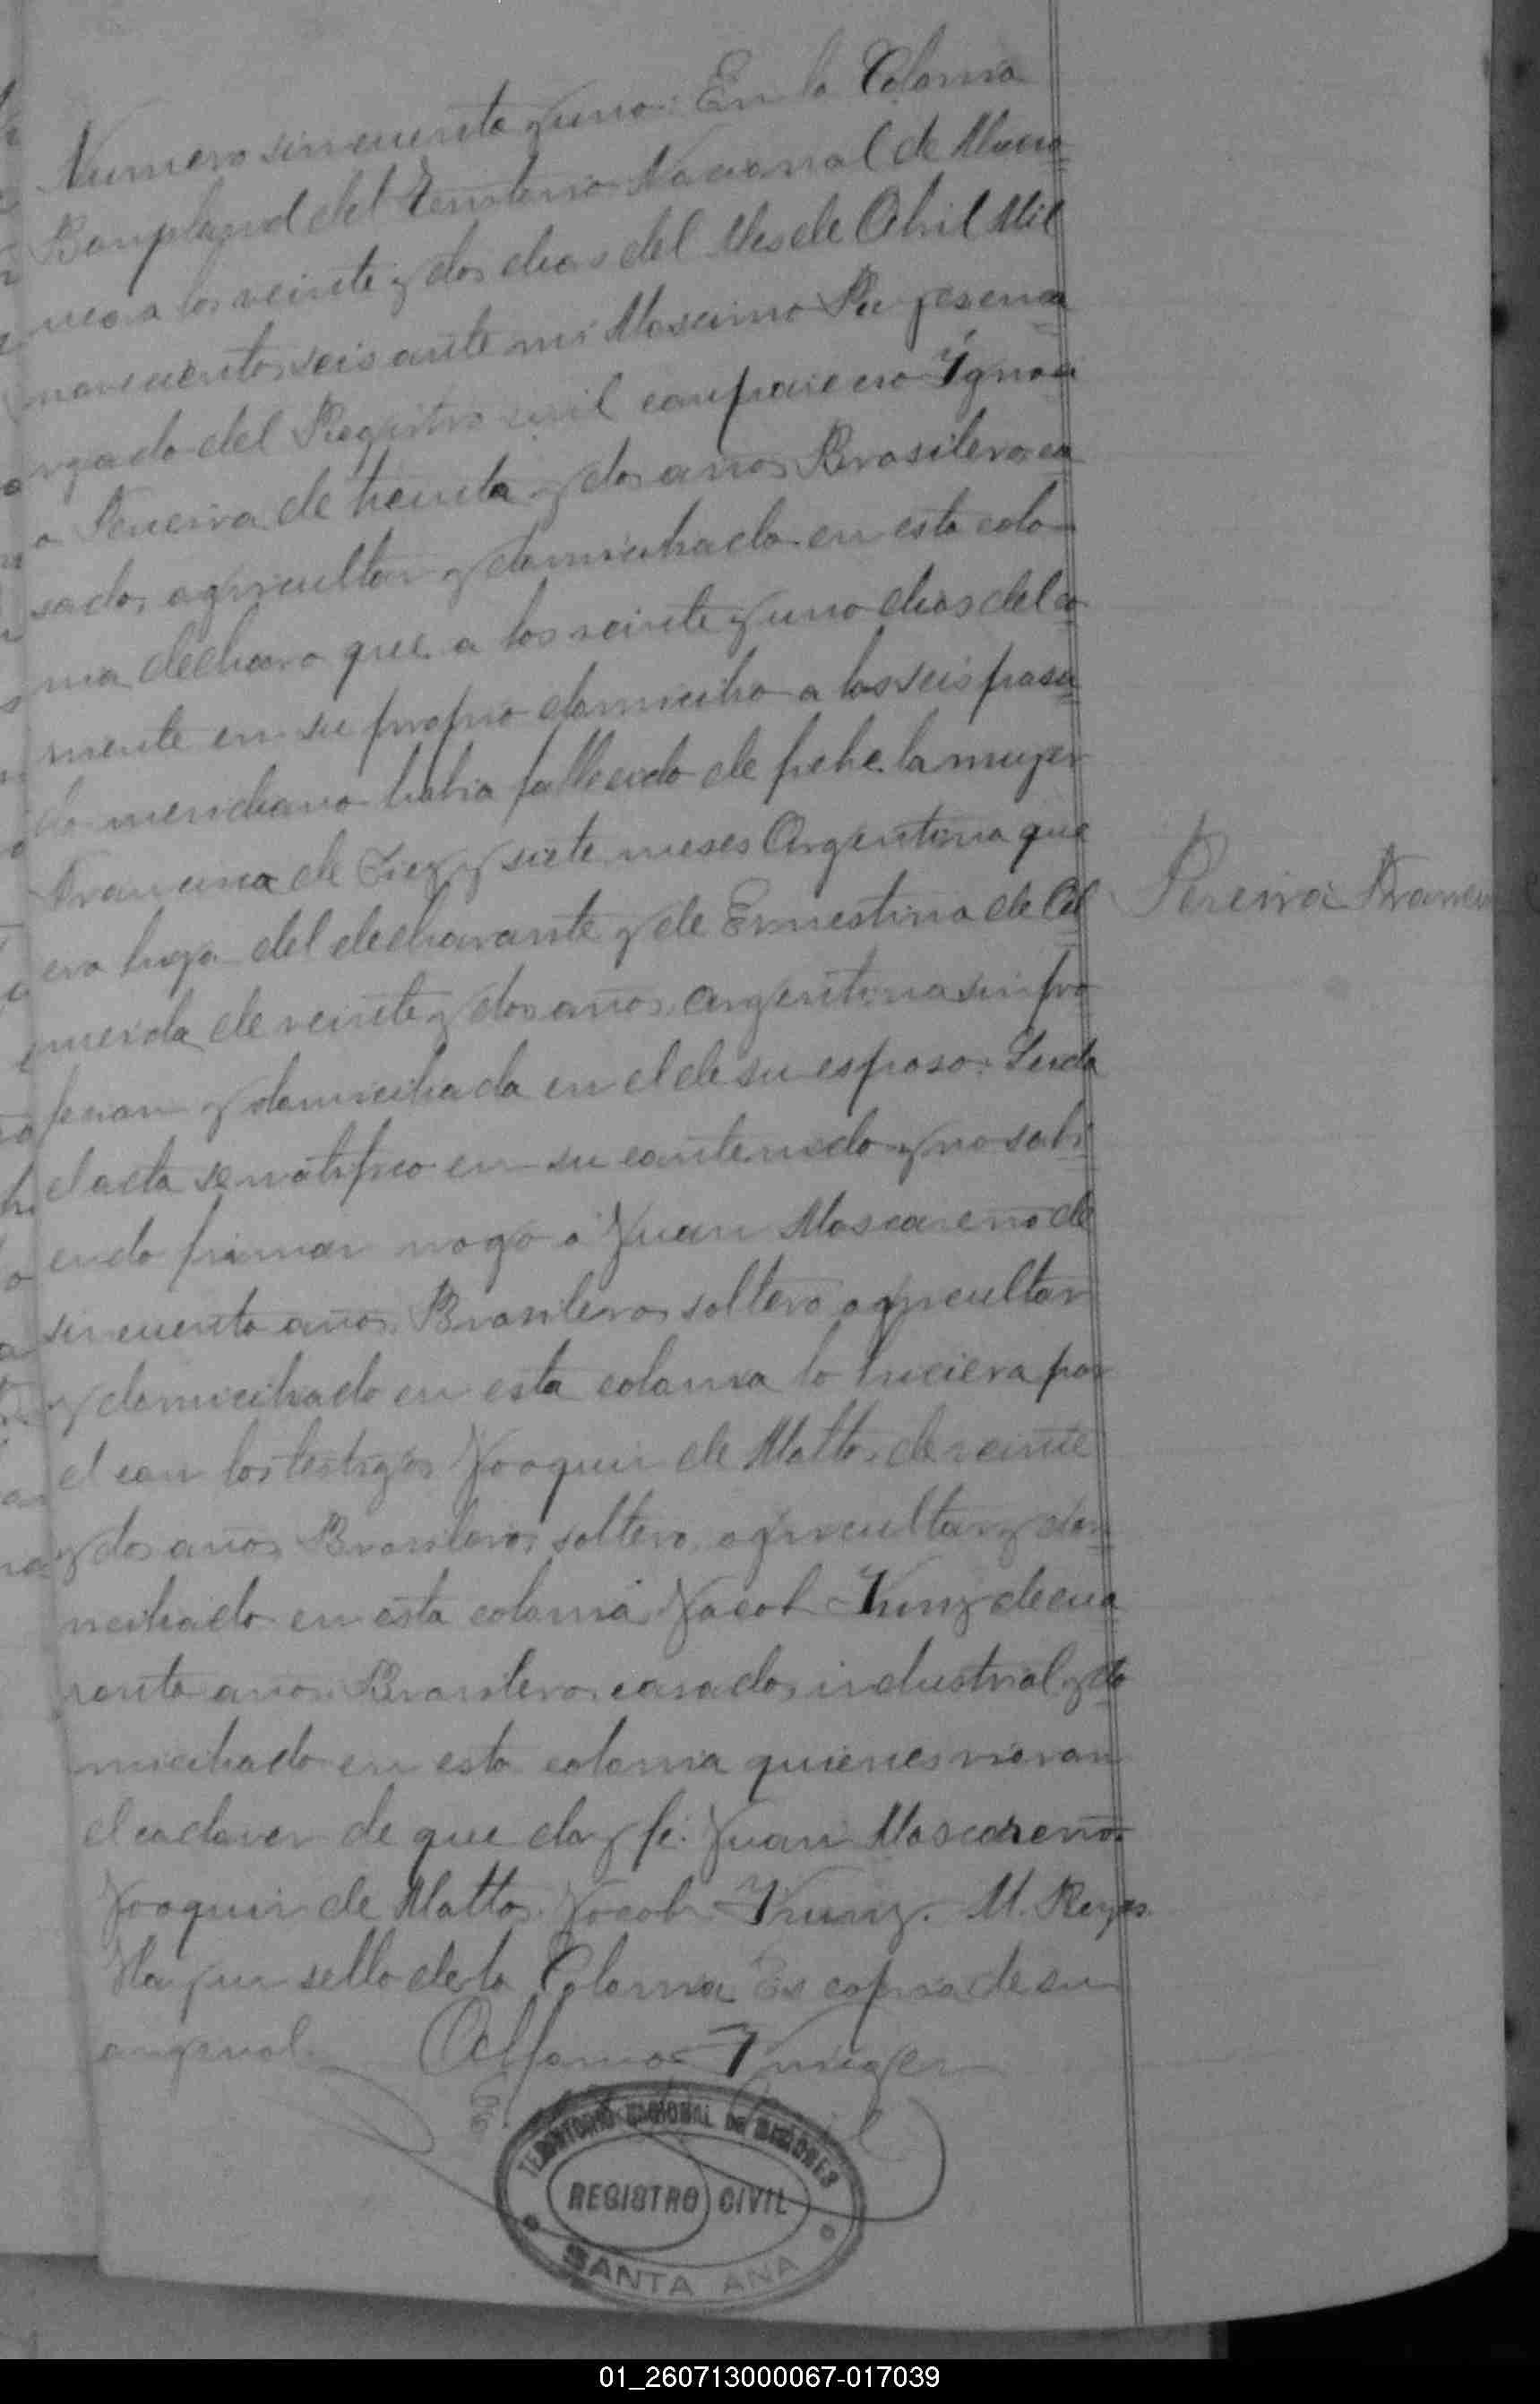 Numero sincuenta y uno: En la Colonia
Bonpland del Territorio Nacional de Misio
nes a los veinte y dos dias del Mes de Abril Mil
novecientos seis ante mi Macsimo Reyes enca
rgado del Registro civil comparecio Ygnaci
o Pereira de treinta y dos años Brasilero, ca
sado, agricultor y domiciliado en esta colo
nia declaro que a los veinte y uno dias del co
rriente en su propio domicilio a las seis pasa
do meridiano habia fallecido de fiebre la mujer
Francisca de Diez y siete meses Argentina que
era hija del declarante y de Ernestina de
de veinte y dos años, argentina sin pro
fecion y domiciliada en el de su esposo: Leida
el acta se ratifico en su contenido y no sabi
endo firmar rogo a Juan Mascareño de
sincuenta años, Brasilero, soltero, agricultor
y domiciliado en esta colonia lo hiciera por
el con los testigos Joaquin de Mattos, de veinte
y dos años, Brasilero, soltero, agricultor y dom
iciliado en esta colonia, Jacob Kunz de cua
renta años, Brasilero, casado, industrial y do
miciliado en esta colonia quienes vieron
el cadaver de que doy fe. Juan Mascareño.
Joaquin de Mattos. Jacob Kunz. M. Reyes.
Hay un sello de la Colonia Es copia de su
original.
Pereira Francis
TERRITORIO NACIONAL DE MISIONES
REGISTRO CIVIL
SANTA ANA
01_260713000067-017039